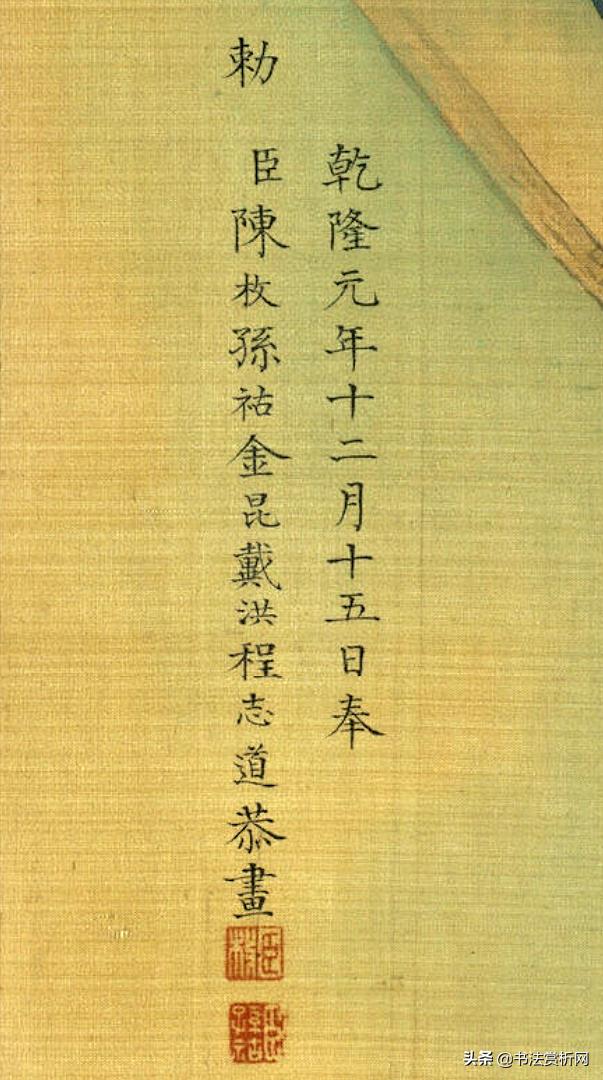 乾隆元年十二月十五日奉
勅
臣陳枚孫祜金昆戴洪程志道恭畫
头条 @书法赏析网